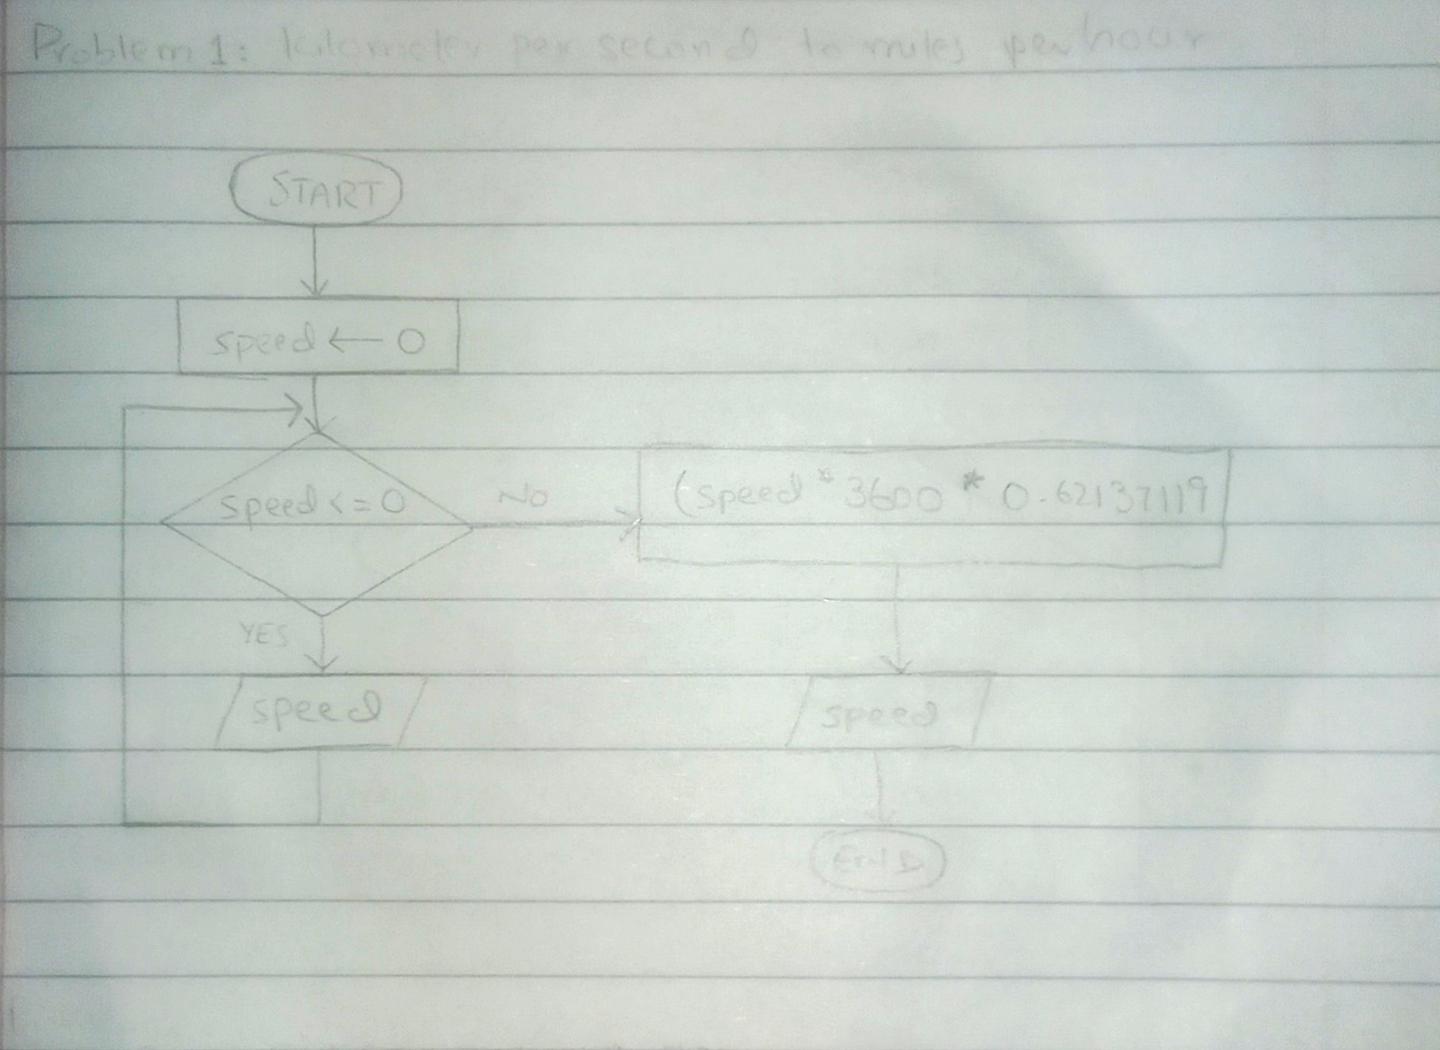 Problem 1: kilometer per second to miles per hour
START
speed ← 0
speed <= 0
No
(speed * 3600 * 0.62137119
YES
speed
speed
END